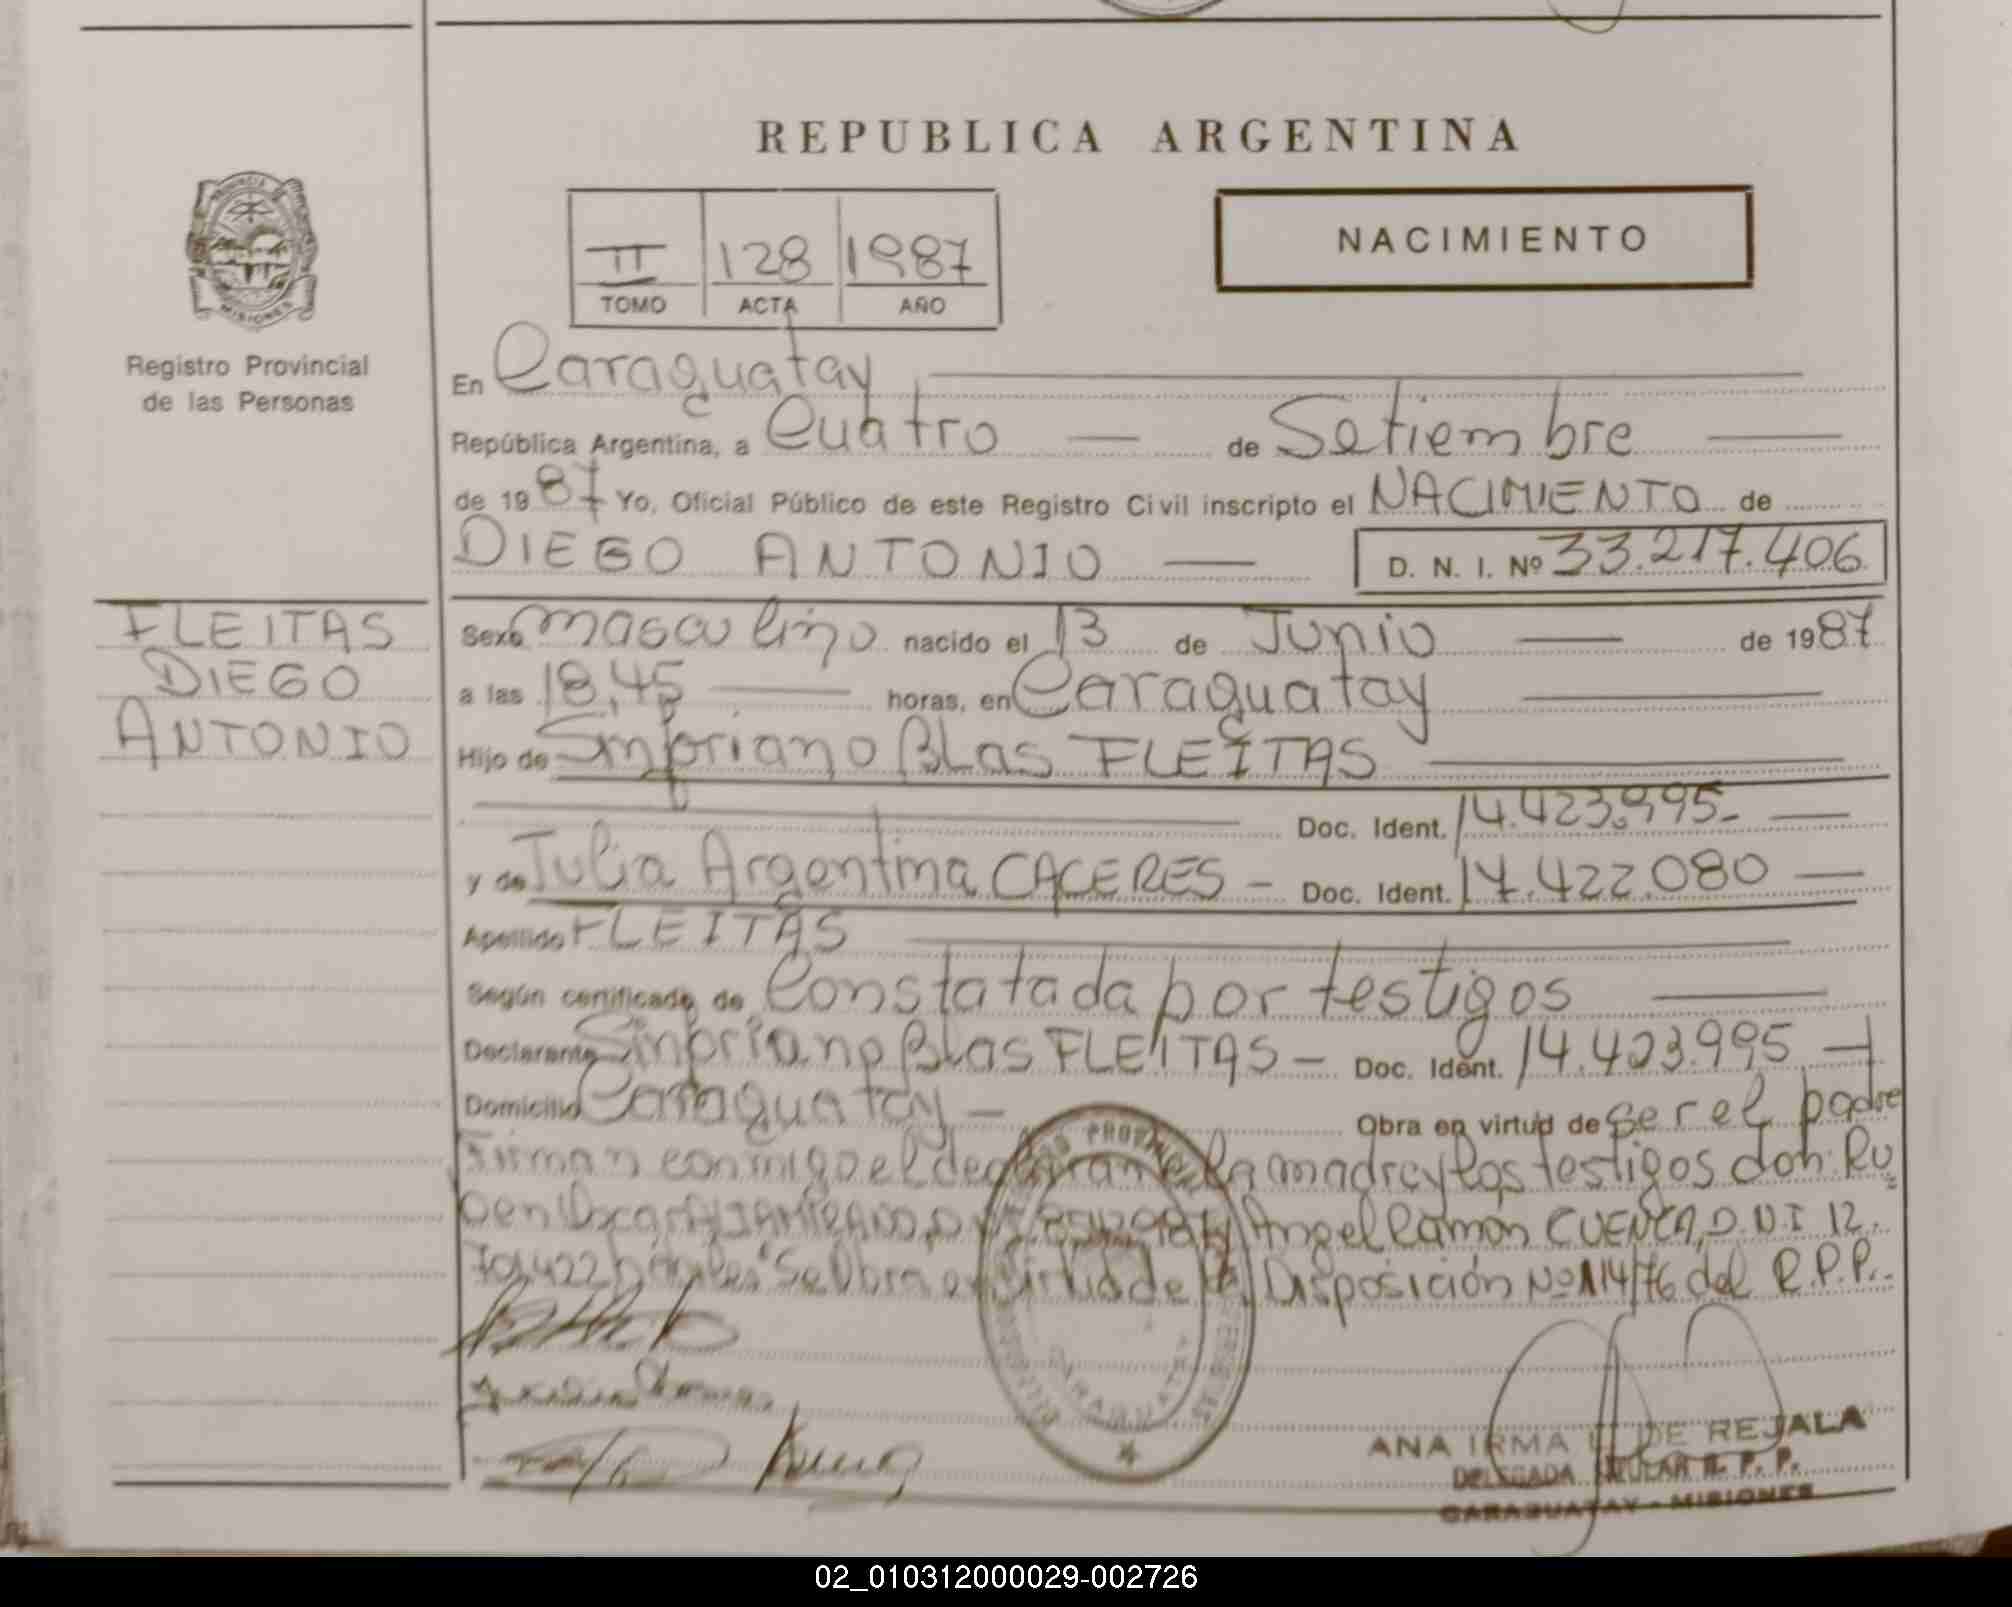 REPUBLICA ARGENTINA
II 128 1987
TOMO ACTA AÑO
NACIMIENTO
PROVINCIA DE
MISIONES
Registro Provincial
de las Personas
FLEITAS
DIEGO
ANTONIO
En Caraguatay
República Argentina, a Cuatro de Setiembre
de 1987 Yo, Oficial Público de este Registro Civil inscripto el NACIMIENTO de
DIEGO ANTONIO D. N. I. Nº 33.217.406
Sexo masculino nacido el 13 de Junio de 1987
a las 18,45 horas, en Caraguatay
Hijo de Sinpriano Blas FLEITAS
Doc. Ident. 14.423.995
y de Julia Argentina CACERES Doc. Ident. 17.422.080
Apellido FLEITAS
Según certificado de Constatada por testigos
Declarante Sinpriano Blas FLEITAS Doc. Ident. 14.423.995
Domicilio Caraguatay Obra en virtud de ser el padre
Firman conmigo el declarante la madre y los testigos don Ru
ben Oscar D.N.I. y Angel Ramón CUENCA, D.N.I 12.
701.422 Se Obra en virtud de la Disposición Nº 114/76 del R.P.P.
CARAGUATAY
ANA IRMA DE REJALA
DELEGADA TITULAR R. P. P.
CARAGUATAY - MISIONES
02_010312000029-002726